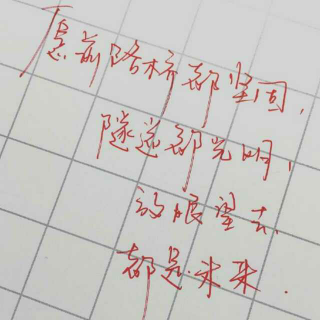 愿前路桥都坚固,
隧道都光明,
放眼望去
都是未来.